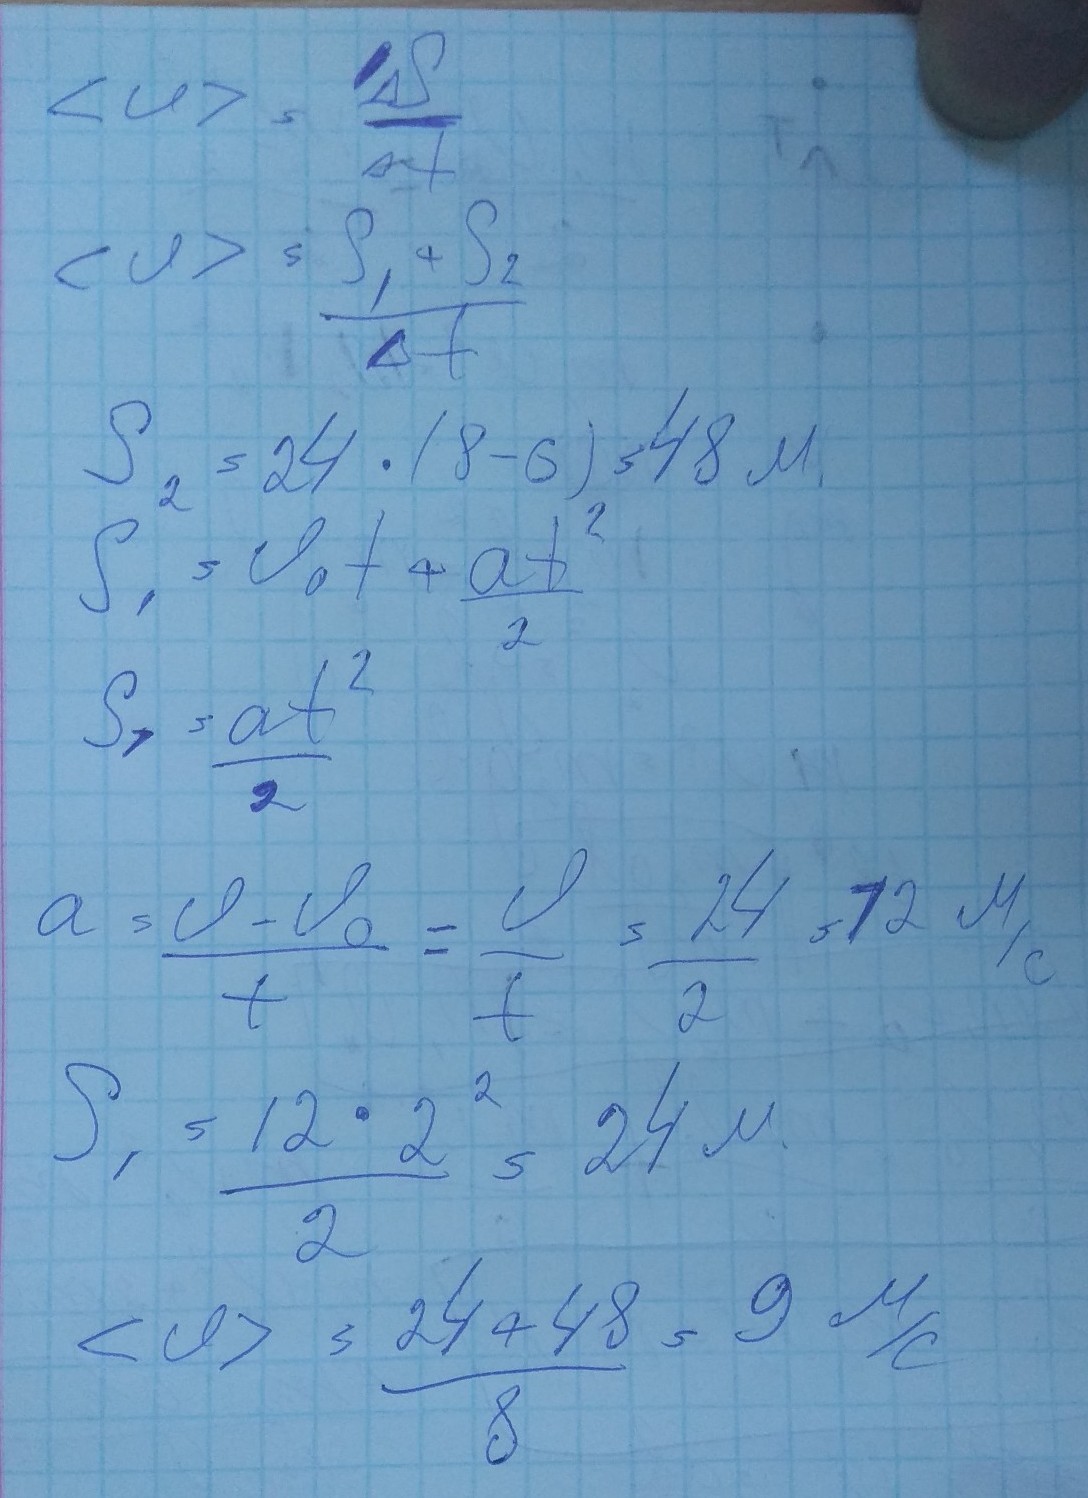 <υ> = ΔS/Δt
<υ> = (S₁ + S₂)/Δt
S₂ = 24 · (8 - 6) = 48 м.
S₁ = υ₀t + at²/2
S₁ = at²/2
a = (υ - υ₀)/t = υ/t = 24/2 = 12 м/с
S₁ = 12 · 2²/2 = 24 м.
<υ> = (24 + 48)/8 = 9 м/с